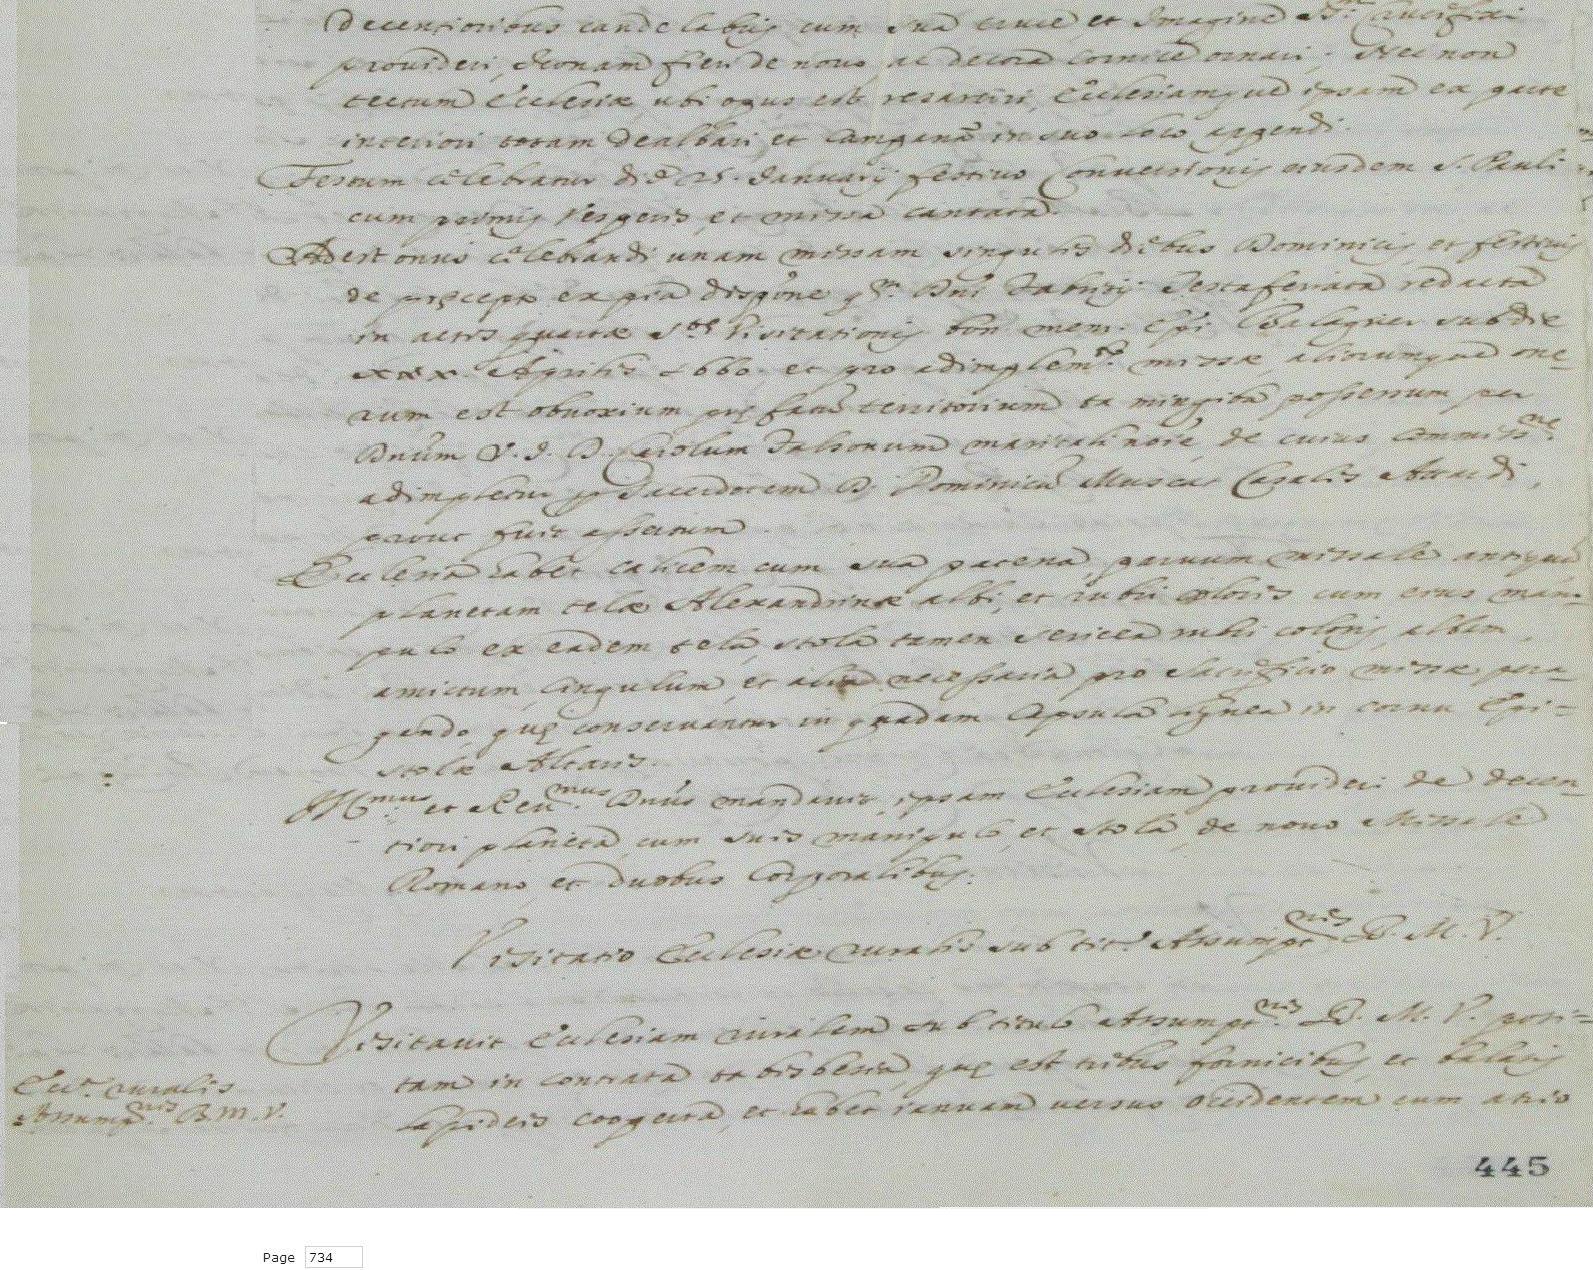 decentioribus candelabrijs cum sua cruce et Imagine SS.mi Crucifixi
provideri, Iconam fieri de novo, ac decora cornice ornari; Nec non
tectum Ecclesiæ, ubi opus est, resarciri, Ecclesiamque ipsam ex parte
interiori totam dealbari et Campanã in suo loco appendi.
Festum celebratur die 25. Januarij festivo Conversionis eiusdem S. Pauli
cum primis Vesperis, et missa cantata.
Adest onus celebrandi unam missam singulis diebus Dominicis, et festivis
de præcepto ex pia dispõne qm. Dni Sestaferrata redacta
in actis quartæ S.tæ Visitationis bon. mem. Epi Balaguer sub die
xxx. Aprilis 1660. et pro adimplem.to missæ, aliorumque one=
rum est obnoxium præfatũ territorium ta possessum per
Dnum V. J. D. Carolum Falsonum maritali noĩe, de cuius commiss.ne
adimpletur p Sacerdotem D. Dominicũ Muscat Casalis Attardi,
prout fuit assertum.
Ecclesia habet calicem cum sua patena, parvum missale antiquũ
planetam telæ Alexandrinæ albi, et rubri coloris cum eius mani=
pulo ex eadem tela, stola tamen sericea rubri coloris, albam,
amictum, cingulum, et alia necessaria pro Sacrificio missæ pera=
gendo, quæ conservantur in quadam Capsula lignea in cornu Epi=
stolæ Altaris.
Ill.mus et Rev.mus Dnũs mandavit, ipsam Ecclesiam provideri de decen=
tiori planeta, cum suis manipulo, et stola, de novo Missale
Romano, et duobus Corporalibus.
Visitatio Ecclesiæ ruralis sub tit.o Assumpt.nis B. M. V.
Visitavit Ecclesiam ruralem sub titulo Assumpt.nis B. M. V. posi=
tam in contrata ta bisbesia, quæ est tribus fornicibus, et balatis
Ecc.a ruralis
lapideis cooperta, et habet ianuam versus occidentem cum atrio
Assump.nis B. M. V.
445
Page 734